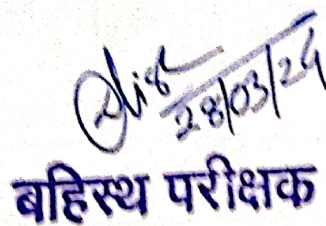 28/03/24
बहिस्थ परीक्षक